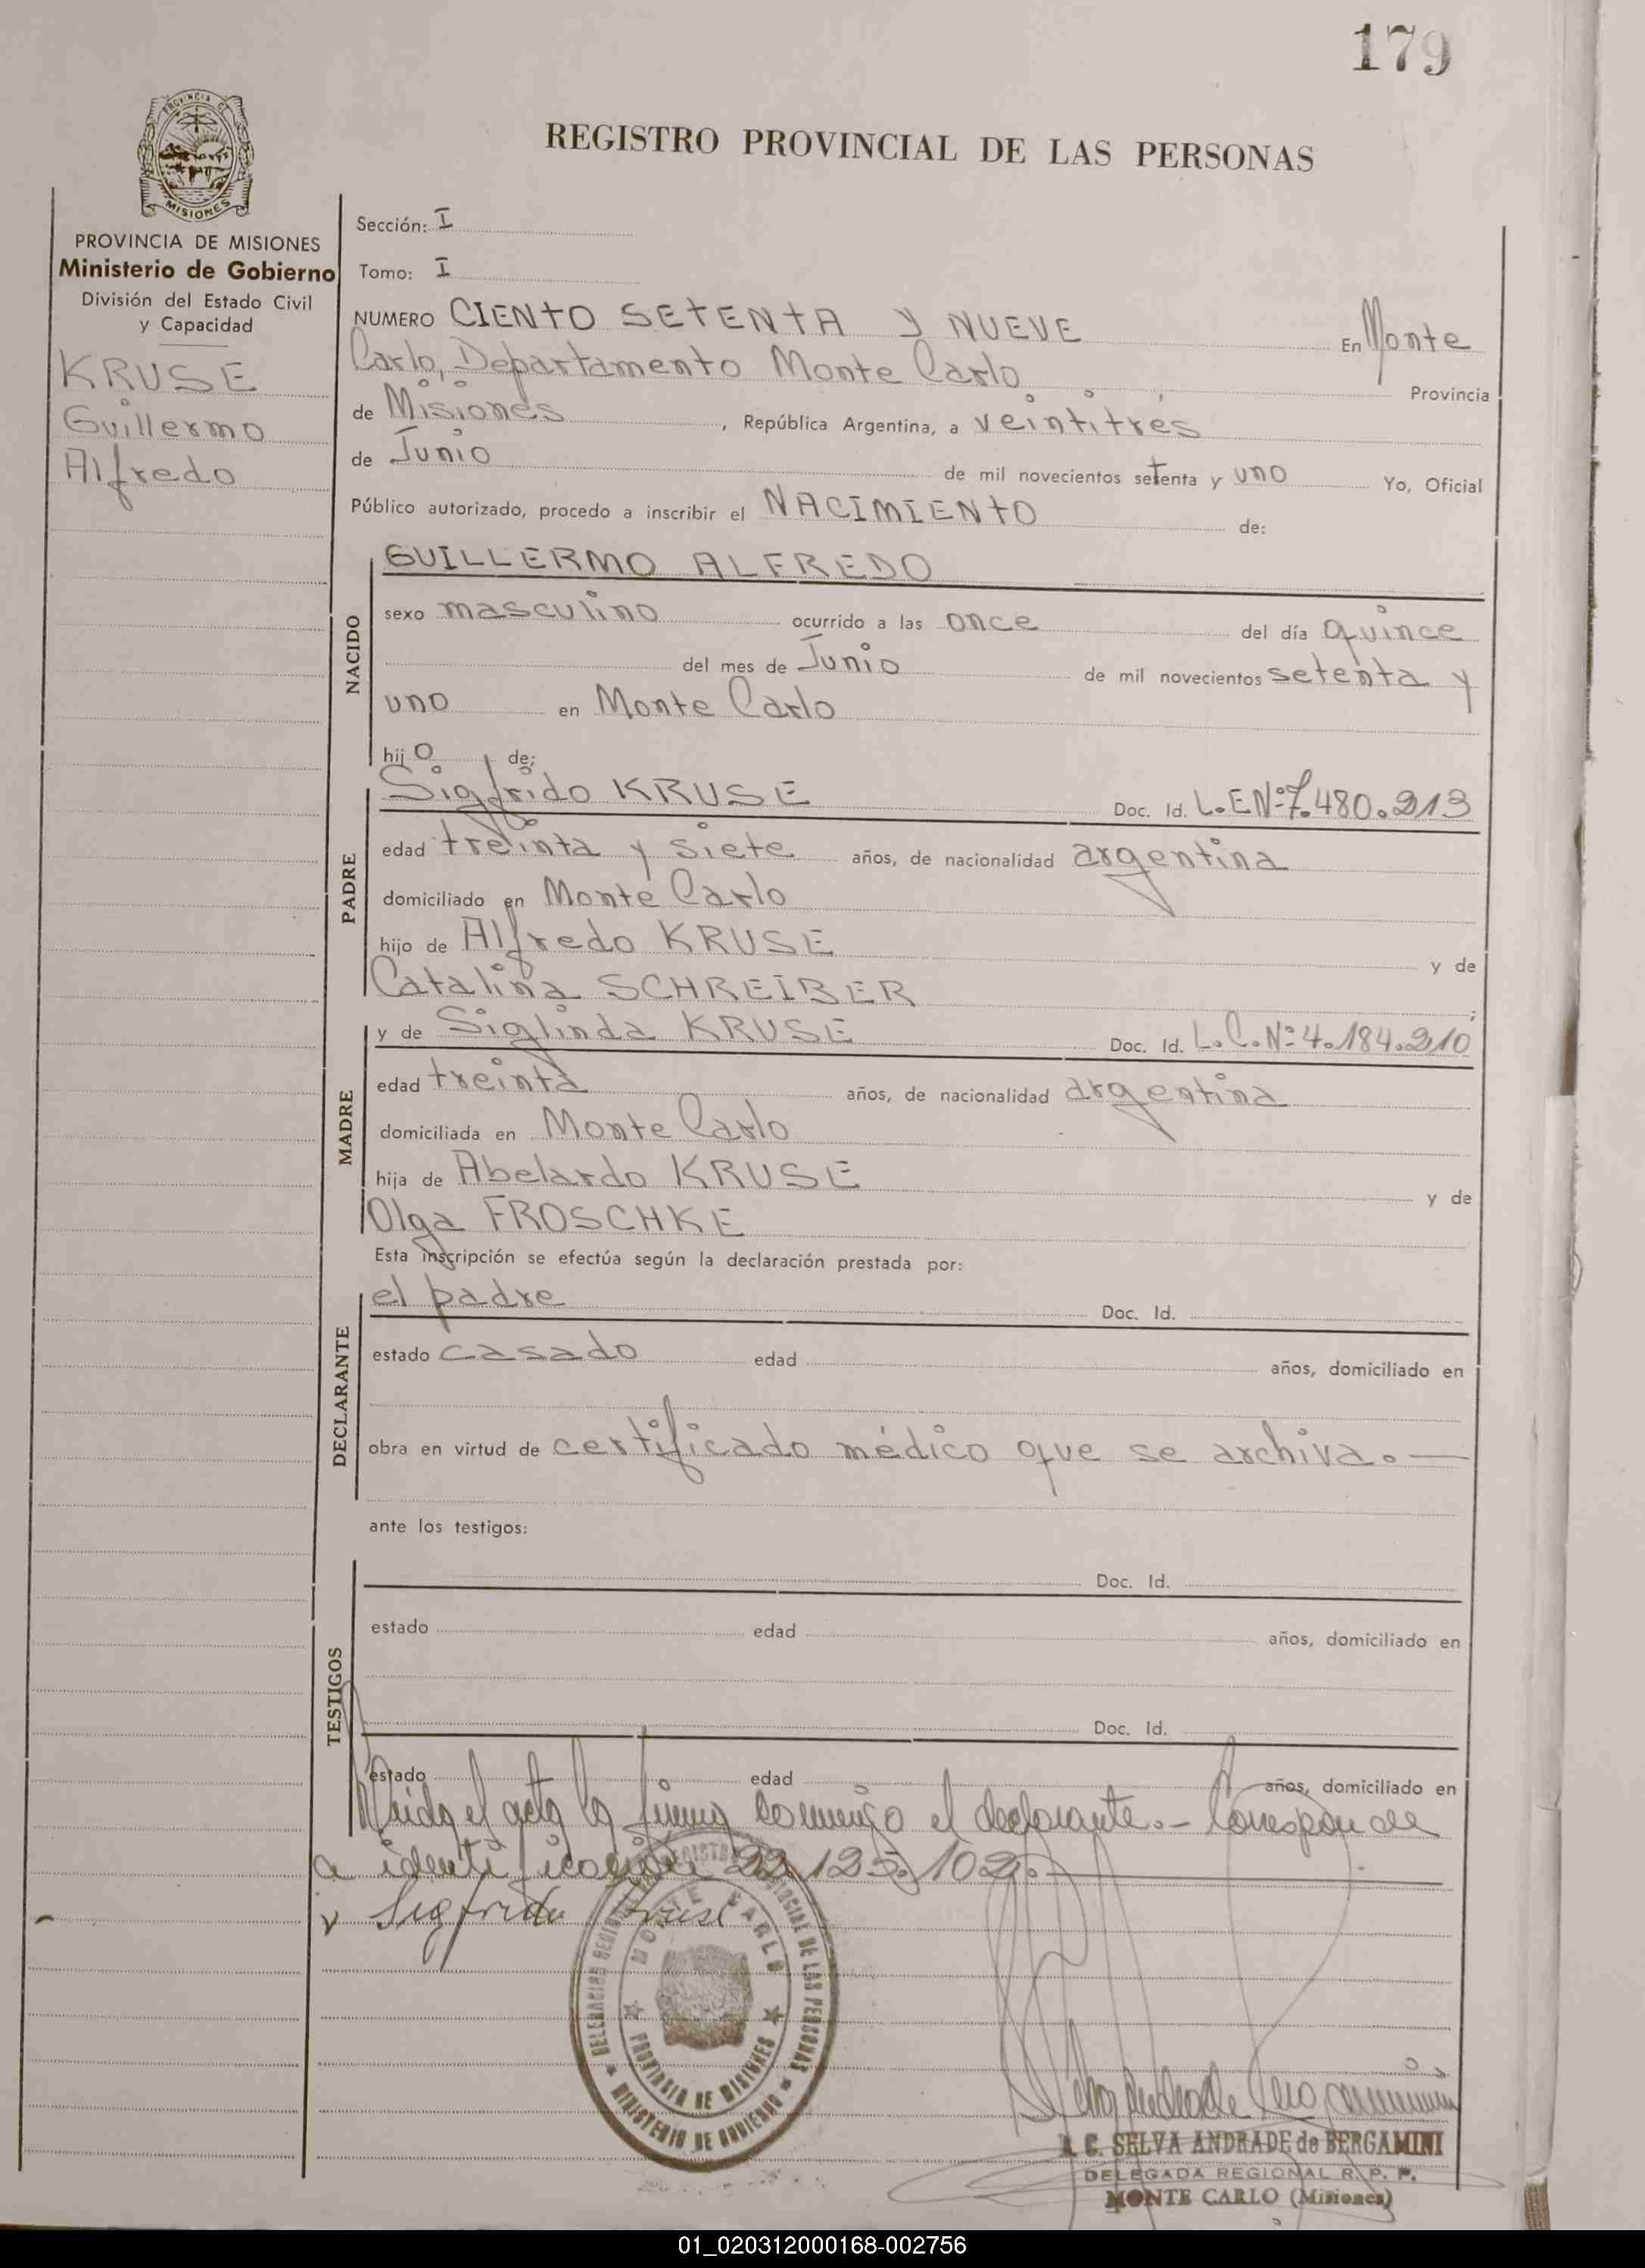 179
PROVINCIA DE
MISIONES
REGISTRO PROVINCIAL DE LAS PERSONAS
PROVINCIA DE MISIONES
Ministerio de Gobierno
División del Estado Civil
y Capacidad
KRUSE
Guillermo
Alfredo
Sección: I
Tomo: I
NUMERO CIENTO SETENTA Y NUEVE En Monte
Carlo, Departamento Monte Carlo Provincia
de Misiones, República Argentina, a veintitrés
de Junio de mil novecientos setenta y uno Yo, Oficial
Público autorizado, procedo a inscribir el NACIMIENTO de:
NACIDO
GUILLERMO ALFREDO
sexo masculino ocurrido a las once del día quince
del mes de Junio de mil novecientos setenta y
uno en Monte Carlo
hijo de:
PADRE
Sigfrido KRUSE Doc. Id. L.E.Nº7.480.213
edad treinta y siete años, de nacionalidad argentina
domiciliado en Monte Carlo
hijo de Alfredo KRUSE y de
Catalina SCHREIBER;
MADRE
y de Siglinda KRUSE Doc. Id. L.C.Nº4.184.210
edad treinta años, de nacionalidad argentina
domiciliada en Monte Carlo
hija de Abelardo KRUSE y de
Olga FROSCHKE
Esta inscripción se efectúa según la declaración prestada por:
DECLARANTE
el padre Doc. Id.
estado casado edad años, domiciliado en
obra en virtud de certificado médico que se archiva.—
ante los testigos:
TESTIGOS
Doc. Id.
estado edad años, domiciliado en
Doc. Id.
estado edad años, domiciliado en
Leida el acta la firma conmigo el declarante.- Corresponde
a identificación 22.125.102.-
Sigfrido Kruse
DELEGACION REGISTRO PROVINCIAL DE LAS PERSONAS
MONTE CARLO
PROVINCIA DE MISIONES
MINISTERIO DE GOBIERNO
SELVA ANDRADE de BERGAMINI
DELEGADA REGIONAL R. P. P.
MONTE CARLO (Misiones)
01_020312000168-002756